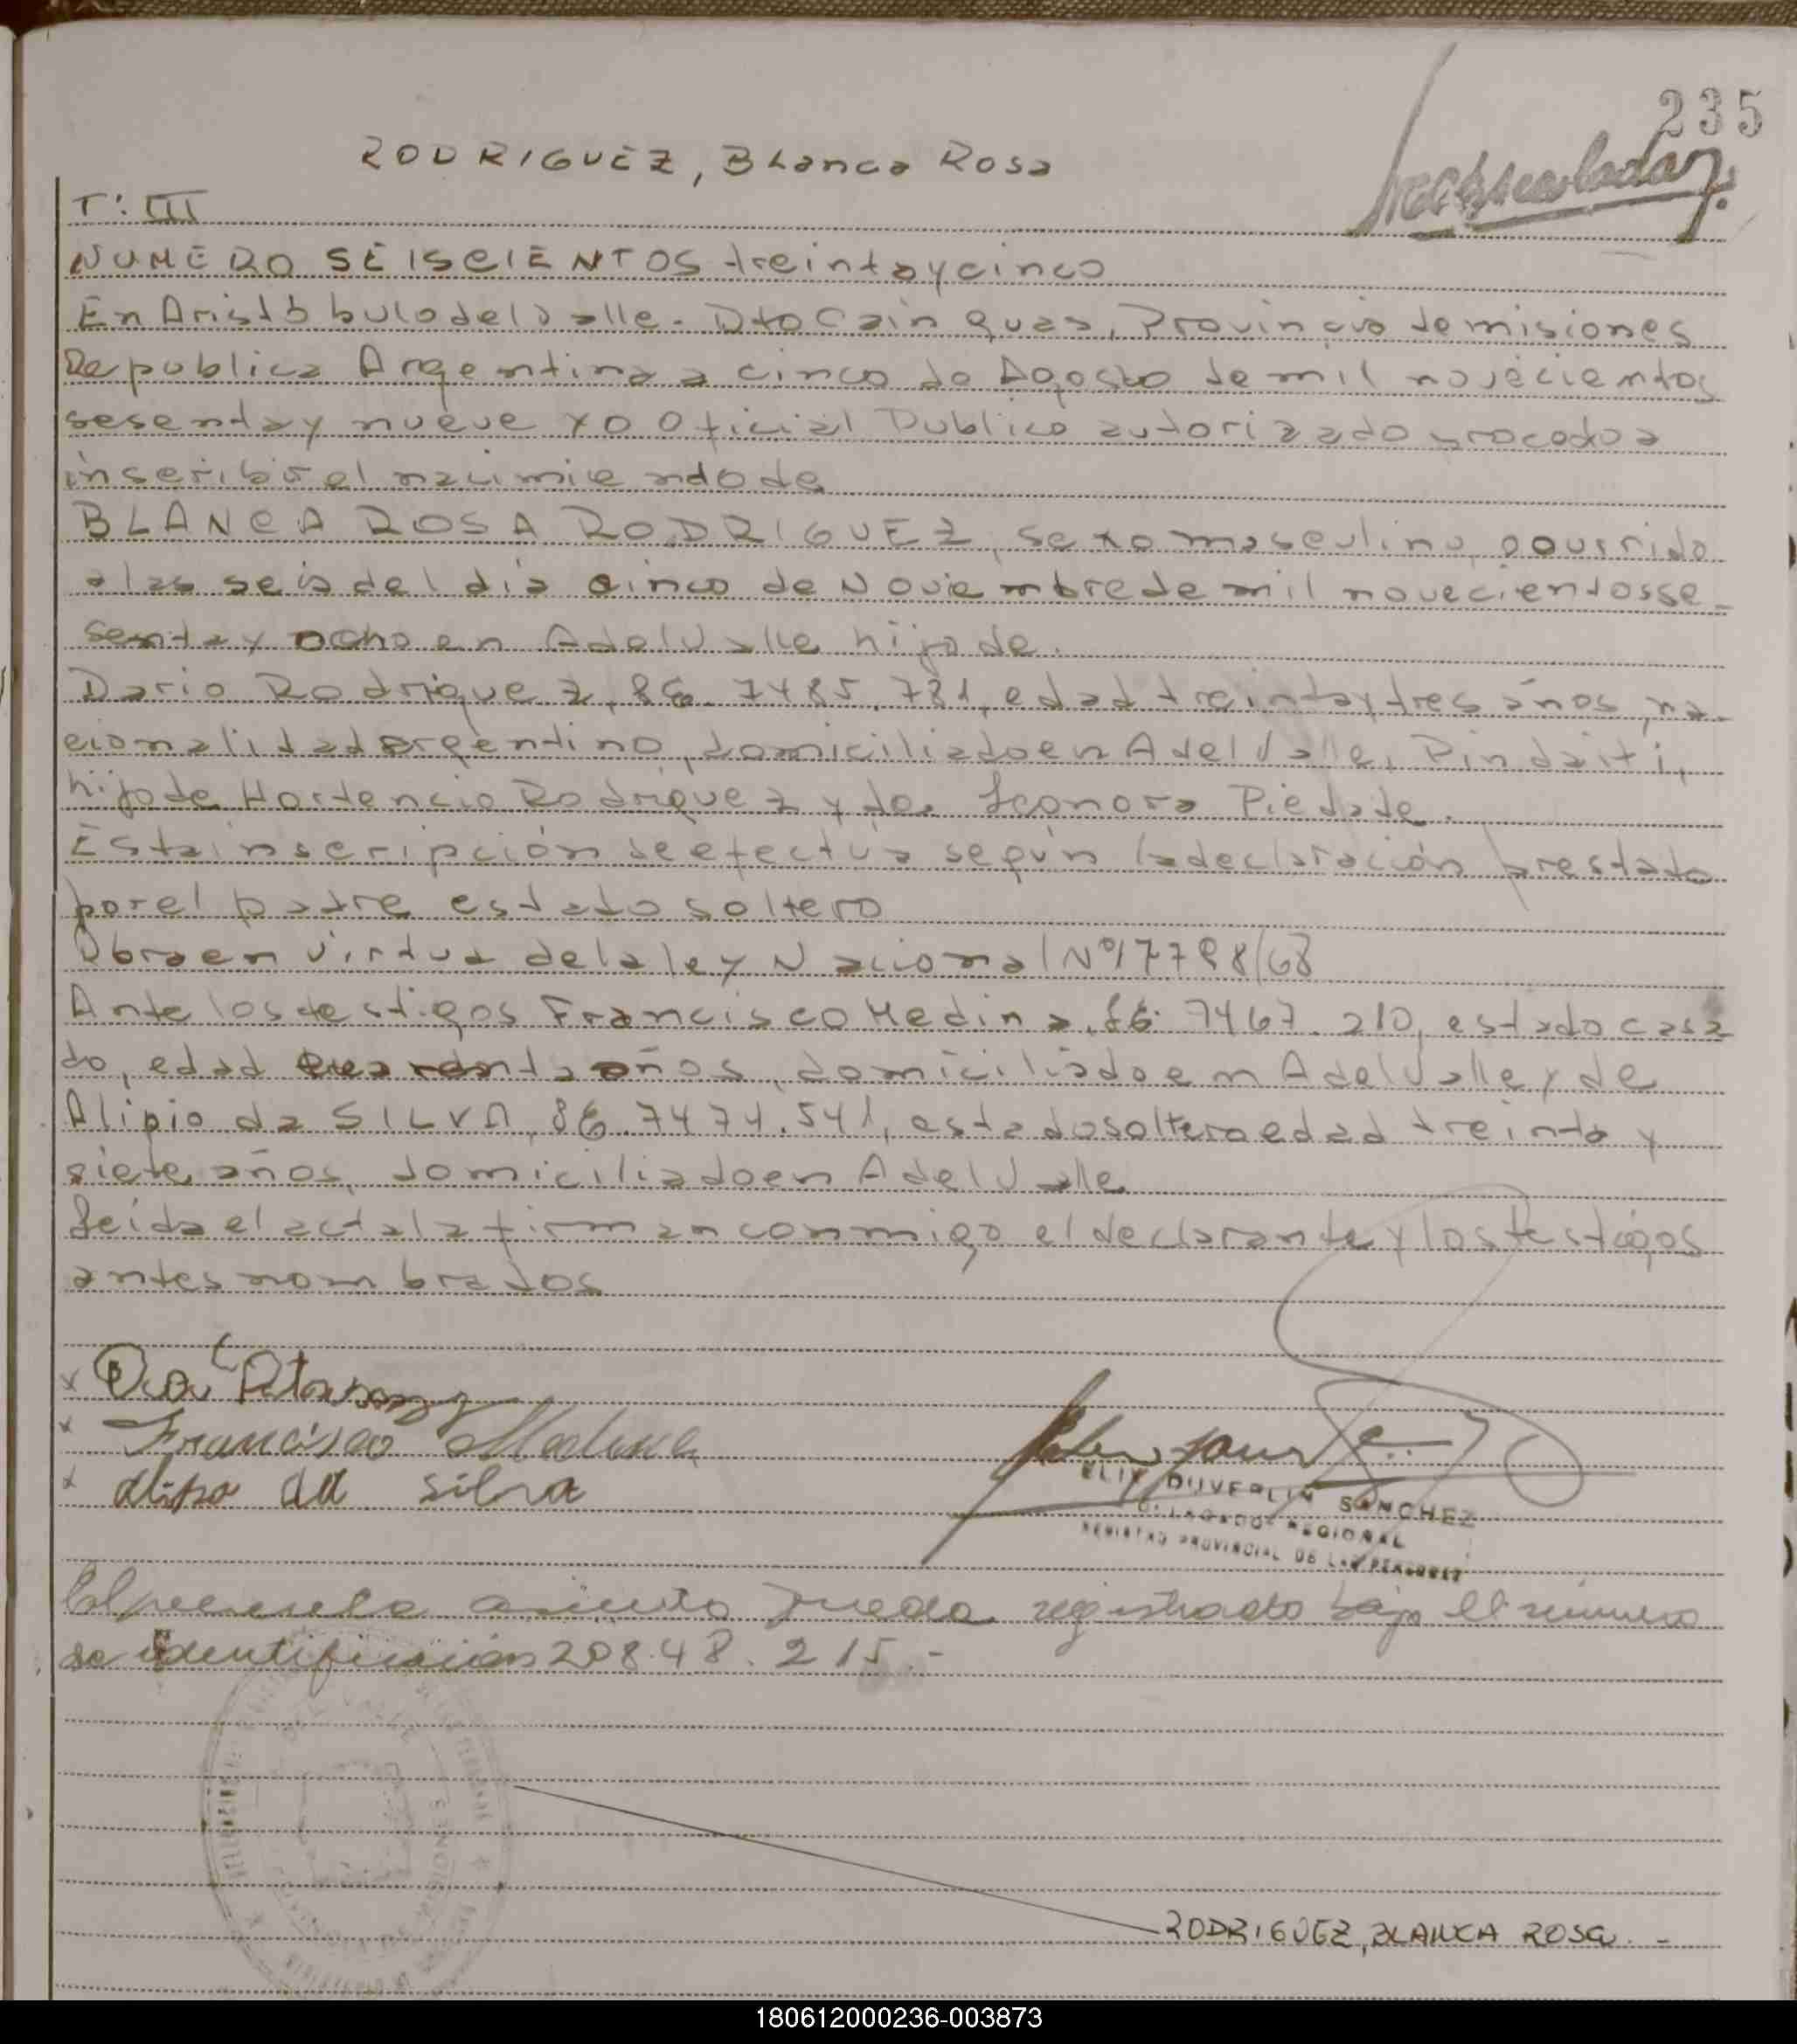 235
RODRIGUEZ, BLanca Rosa
T: III
NUMERO SEISCIENTOS treintaycinco
En Aristóbulo del Valle - Dto Cain guas, Provincia de misiones
Republica Argentina a cinco de Agosto de mil novecientos
sesenta y nueve yo Oficial Publico autorizado procedo a
inscribir el nacimiento de
BLANCA ROSA RODRIGUEZ, sexo masculino, ocurrido
a las seis del dia cinco de Noviembre de mil novecientos se-
senta y ocho en A del Valle hijo de.
Dario Rodriguez, 7485.781, edad treinta y tres años, na-
cionalidad argentino, domiciliado en A del Valle, Pindaití,
hijo de Hortencio Rodriguez y de Leonora Piedade.
Esta inscripción se efectúa según la declaración prestada
por el padre estado soltero
Obra en virtud de la ley Nacional Nº 17798/68
Ante los testigos Francisco Medina, 7467.210, estado casa
do, edad cuarenta años, domiciliado en A del Valle y de
Alipio da SILVA, 7474.541, estado soltero edad treinta y
siete años, domiciliado en A del Valle
Leída el acta la firman conmigo el declarante y los testigos
antes nombrados
x
x Francisco Medina
x Alipo da Silva
ELIX DUVERLIN SANCHEZ
DELEGADO REGIONAL
REGISTRO PROVINCIAL DE LAS PERSONAS
El presente asiento queda registrado bajo el número
de identificación 208.48.215.-
RODRIGUEZ, BLANCA ROSA. -
180612000236-003873